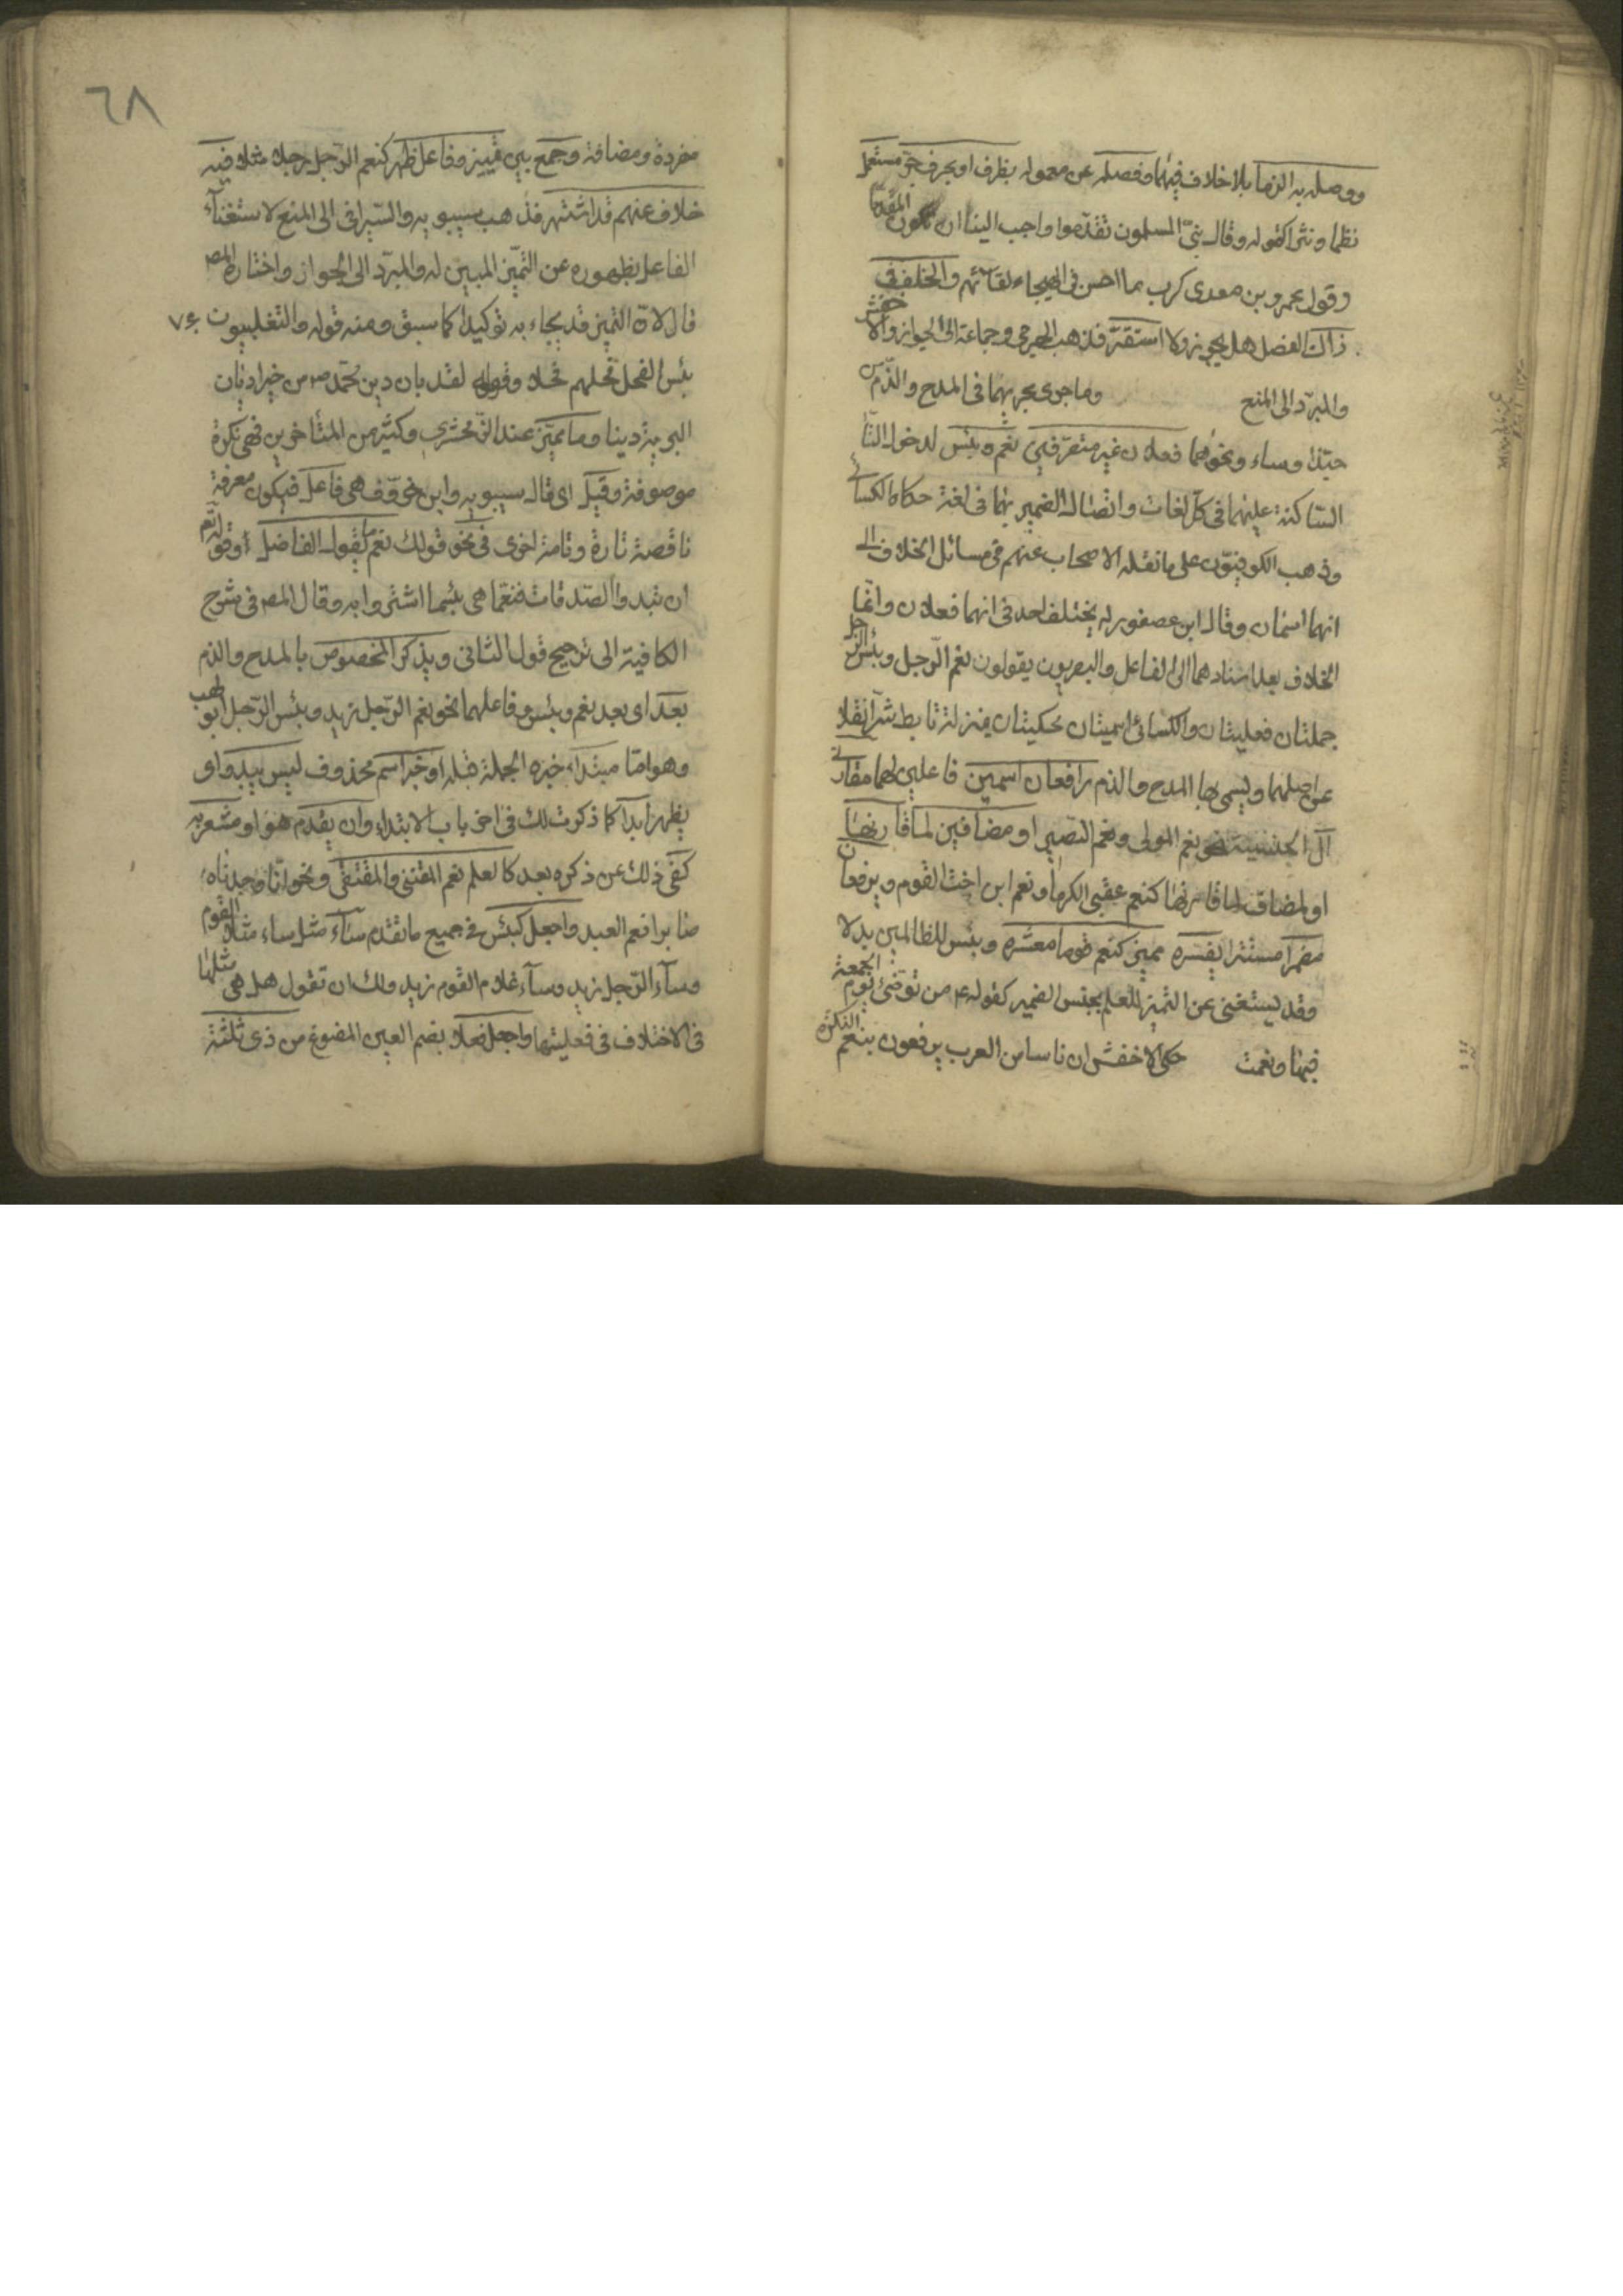 ووصله به الزما بلا خلاف فيهما وفصله عن معموله بظرف او بحرف جرّ مستعمل
نظما ونثرا كقوله وقال نبيّ المسلمون تقدّموا واحبب الينا ان تكون المقدّما
وقول عمرو بن معدى كرب ما احسن في الهيجاء لقاءهم والخلف في
ذاك الفصل هل يجوز ولا استقرّ فذهب الجرمي وجماعة الى الجواز والاخفش
والمبرّد الى المنع وما جرى مجريهما في المدح والذّم من
حبّذا وساء ونحوهما فعلان غير متصرّفين نعم وبئس لدخول التّاء
السّاكنة عليهما في كلّ لغات واتّصال الضمير بهما في لغة حكاها الكسائي
وذهب الكوفيّون على ما نقله الاصحاب عنهم في مسائل الخلاف الى
انهما اسمان وقال ابن عصفور لم يختلف احد في انهما فعلان وانّما
الخلاف بعد اسنادهما الى الفاعل والبصريون يقولون نعم الرّجل وبئس الرّجل
جملتان فعليتان والكسائى اسميتان محكيتان بمنزلة تابط شرّا نقلا
عن اصلهما ويسمى بها المدح والذم رافعان اسمين فاعلين لهما مقارني
أل الجنسية نحو نعم المولى ونعم النّصير او مضافين لما قارنها
او لمضاف لما قارنها كنعم عقبى الكرما ونعم ابن اخت القوم ويرفعان
مضمرا مستترا يفسّره مميز كنعم قوما معشره وبئس للظالمين بدلا
وقد يستغنى عن التميز للعلم بجنس الضمير كقوله ع من توضّئ يوم الجمعة
فبها ونعمت حكى الاخفش ان ناسا من العرب يرفعون بنعم النكرة
٦٨
مفردة ومضافة وجمع بين تمييز وفاعل ظهر كنعم الرّجل رجلا مثلا فيه
خلاف عنهم قد اشتهر فذهب سيبويه والسّيرافي الى المنع لاستغناء
الفاعل بظهوره عن التّميز المبين له والمبرّد الى الجواز واختاره المص
قال لانّ التميز قد يجاء به توكيدا كما سبق ومنه قوله والتغلبيون
بئس الفحل فحلهم فحلا وقوله لقد بان دين محمّد ص من خير اديان
البريّة دينا وما مميّز عند الزّمخشري وكثير من المتأخرين فهي نكرة
موصوفة وقيل اى قال سيبويه وابن خروف هي فاعل فيكون معرفة
ناقصة تارة وتامة اخرى في نحو قولك نعم ما يقول الفاضل وقوله تعم
ان تبدوا الصّدقات فنعمّا هي بئسما اشتروا به وقال المص في شرح
الكافية الى ترجيح قول الثاني ويذكر المخصوص بالمدح والذم
بعد اى بعد نعم وبئس وفاعلهما نحو نعم الرّجل زيد وبئس الرّجل ابو لهب
وهو امّا مبتدا خبره الجملة قبله او خبر اسم محذوف ليس يبدو اى
يظهر ابدا كما ذكرت لك في اخر باب الابتداء وان يقدّم هو او مشعر به
كفى ذلك عن ذكره بعد كالعلم نعم المقتنى والمقتفى ونحو انّا وجدناه
صابرا نعم العبد واجعل كبئس في جميع ما تقدم ساء مثل ساء مثلا القوم
وساء الرّجل زيد وساء غلام القوم زيد ولك ان تقول هل هي مثلها
في الاختلاف في فعليتها واجعل فعلا بضم العين المصوغ من ذى ثلثة